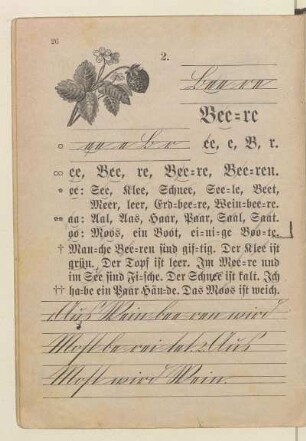 26
2.
Bee re
Bee=re
○ ee e b r ee, e, B, r.
○○ ee, Bee, re, Bee=re, Bee=ren.
* ee: See, Klee, Schnee, See=le, Beet,
Meer, leer, Erd=bee=re, Wein=bee=re.
** aa: Aal, Aas, Haar, Paar, Saal, Saat.
oo: Moos, ein Boot, ei=ni=ge Boo=te.
† Man=che Bee=ren sind gif=tig. Der Klee ist
grün. Der Topf ist leer. Im Mee=re und
im See sind Fi=sche. Der Schnee ist kalt. Ich
†† ha=be ein Paar Hän=de. Das Moos ist weich.
Aus Wein bee ren wird
Most be rei tet. Aus
Most wird Wein.